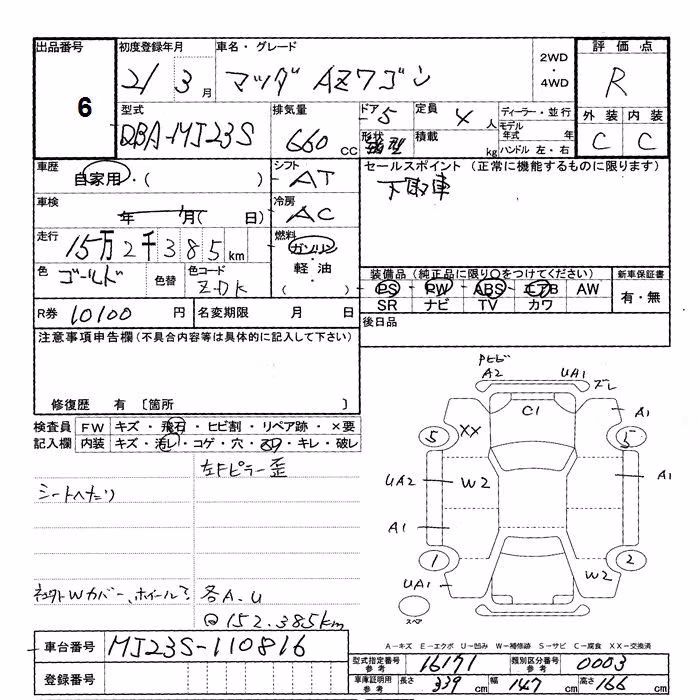 出品番号 初度登録年月 車名・グレード 2WD・4WD 評価点
6 21 3月 マツダ AZワゴン R
型式 排気量 ドア 5 定員 4人 ディーラー・並行 外装 内装
DBA-MJ23S 660cc 形状 積載 kg モデル年式 年 ハンドル 左・右 C C
車歴 自家用・( ) シフト AT セールスポイント (正常に機能するものに限ります)
車検 年 月( 日) 冷房 AC 下取車
走行 15万2千385km 燃料 ガソリン・軽油・( )
色 ゴールド 色替 色コード ZDK 装備品 (純正品に限り○をつけてください) 新車保証書
PS・PW・ABS・エアB AW 有・無
SR ナビ TV カワ
R券 10100円 名変期限 月 日 後日品
注意事項申告欄 (不具合内容等は具体的に記入して下さい)
修復歴 有 〔箇所 〕
検査員 FW キズ・飛石・ヒビ割・リペア跡・×要
記入欄 内装 キズ・汚レ・コゲ・穴・・キレ・破レ
左Fピラー歪
シートヘタリ
Wカバー、ホイール 各A.U
152.385km
A2 UA1 ズレ
C1 A1
5 XX 5
UA2 W2 A1
A1
1 2
UA1 W2
スペア
A-キズ E-エクボ U-凹み W-補修跡 S-サビ C-腐食 XX-交換済
車台番号 MJ23S-110816
登録番号
型式指定番号 参考 16171 類別区分番号 参考 0003
車庫証明用 参考 長さ 339cm 幅 147cm 高さ 166cm